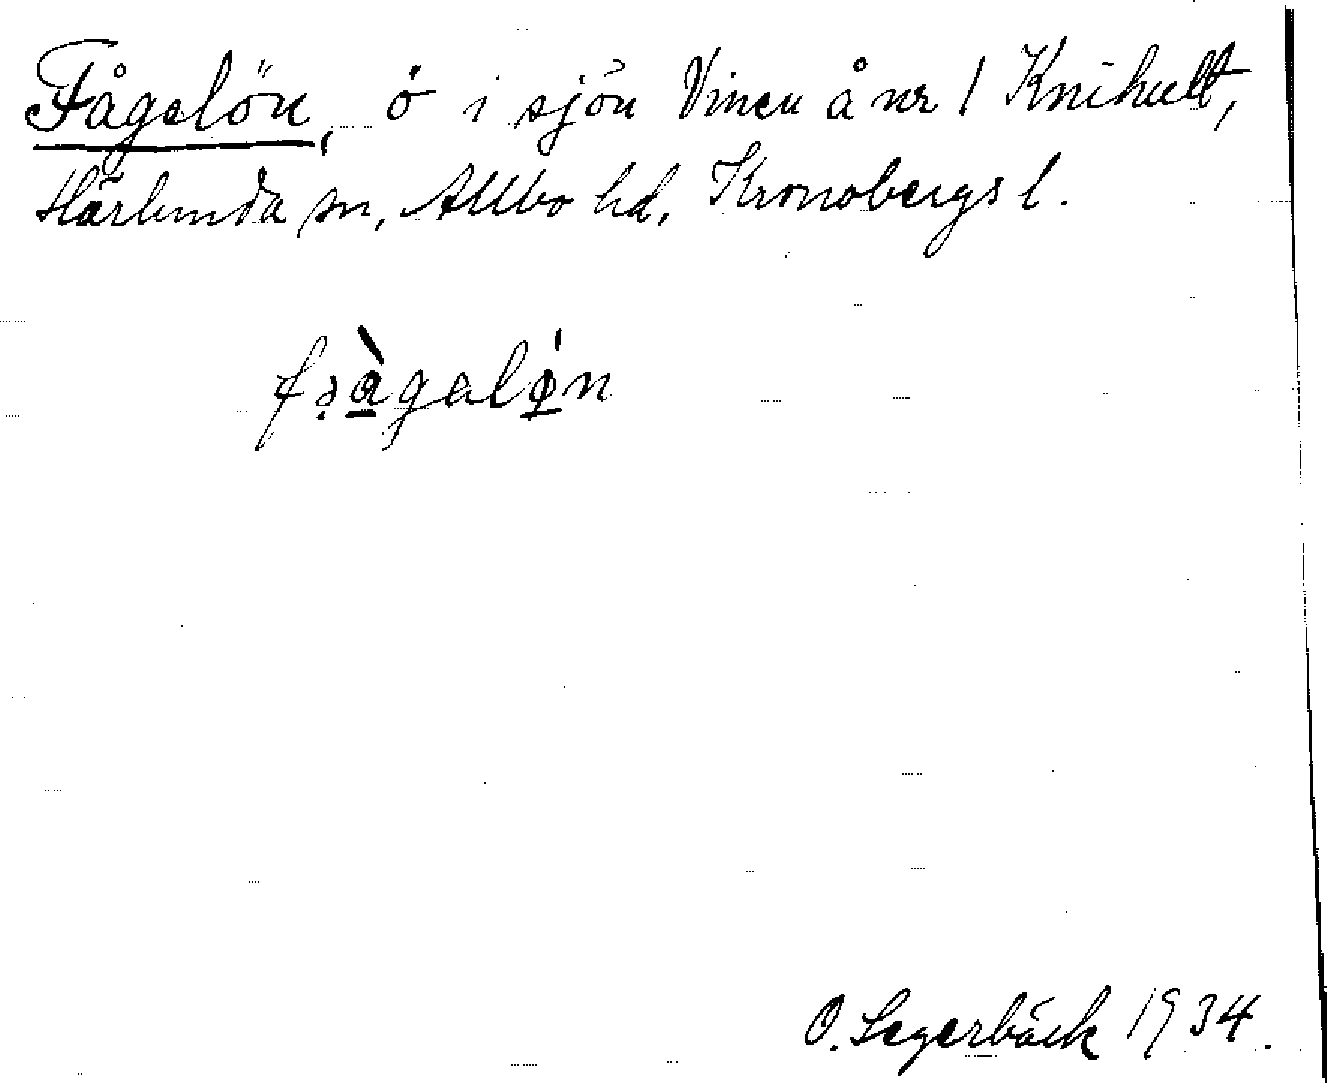 Fågelön, ö i sjön Vinen å nr 1 Knihult,
Härlunda sn, Allbo hd, Kronobergs l.
fəàgəlǿn
O. Segerbäck 1934.